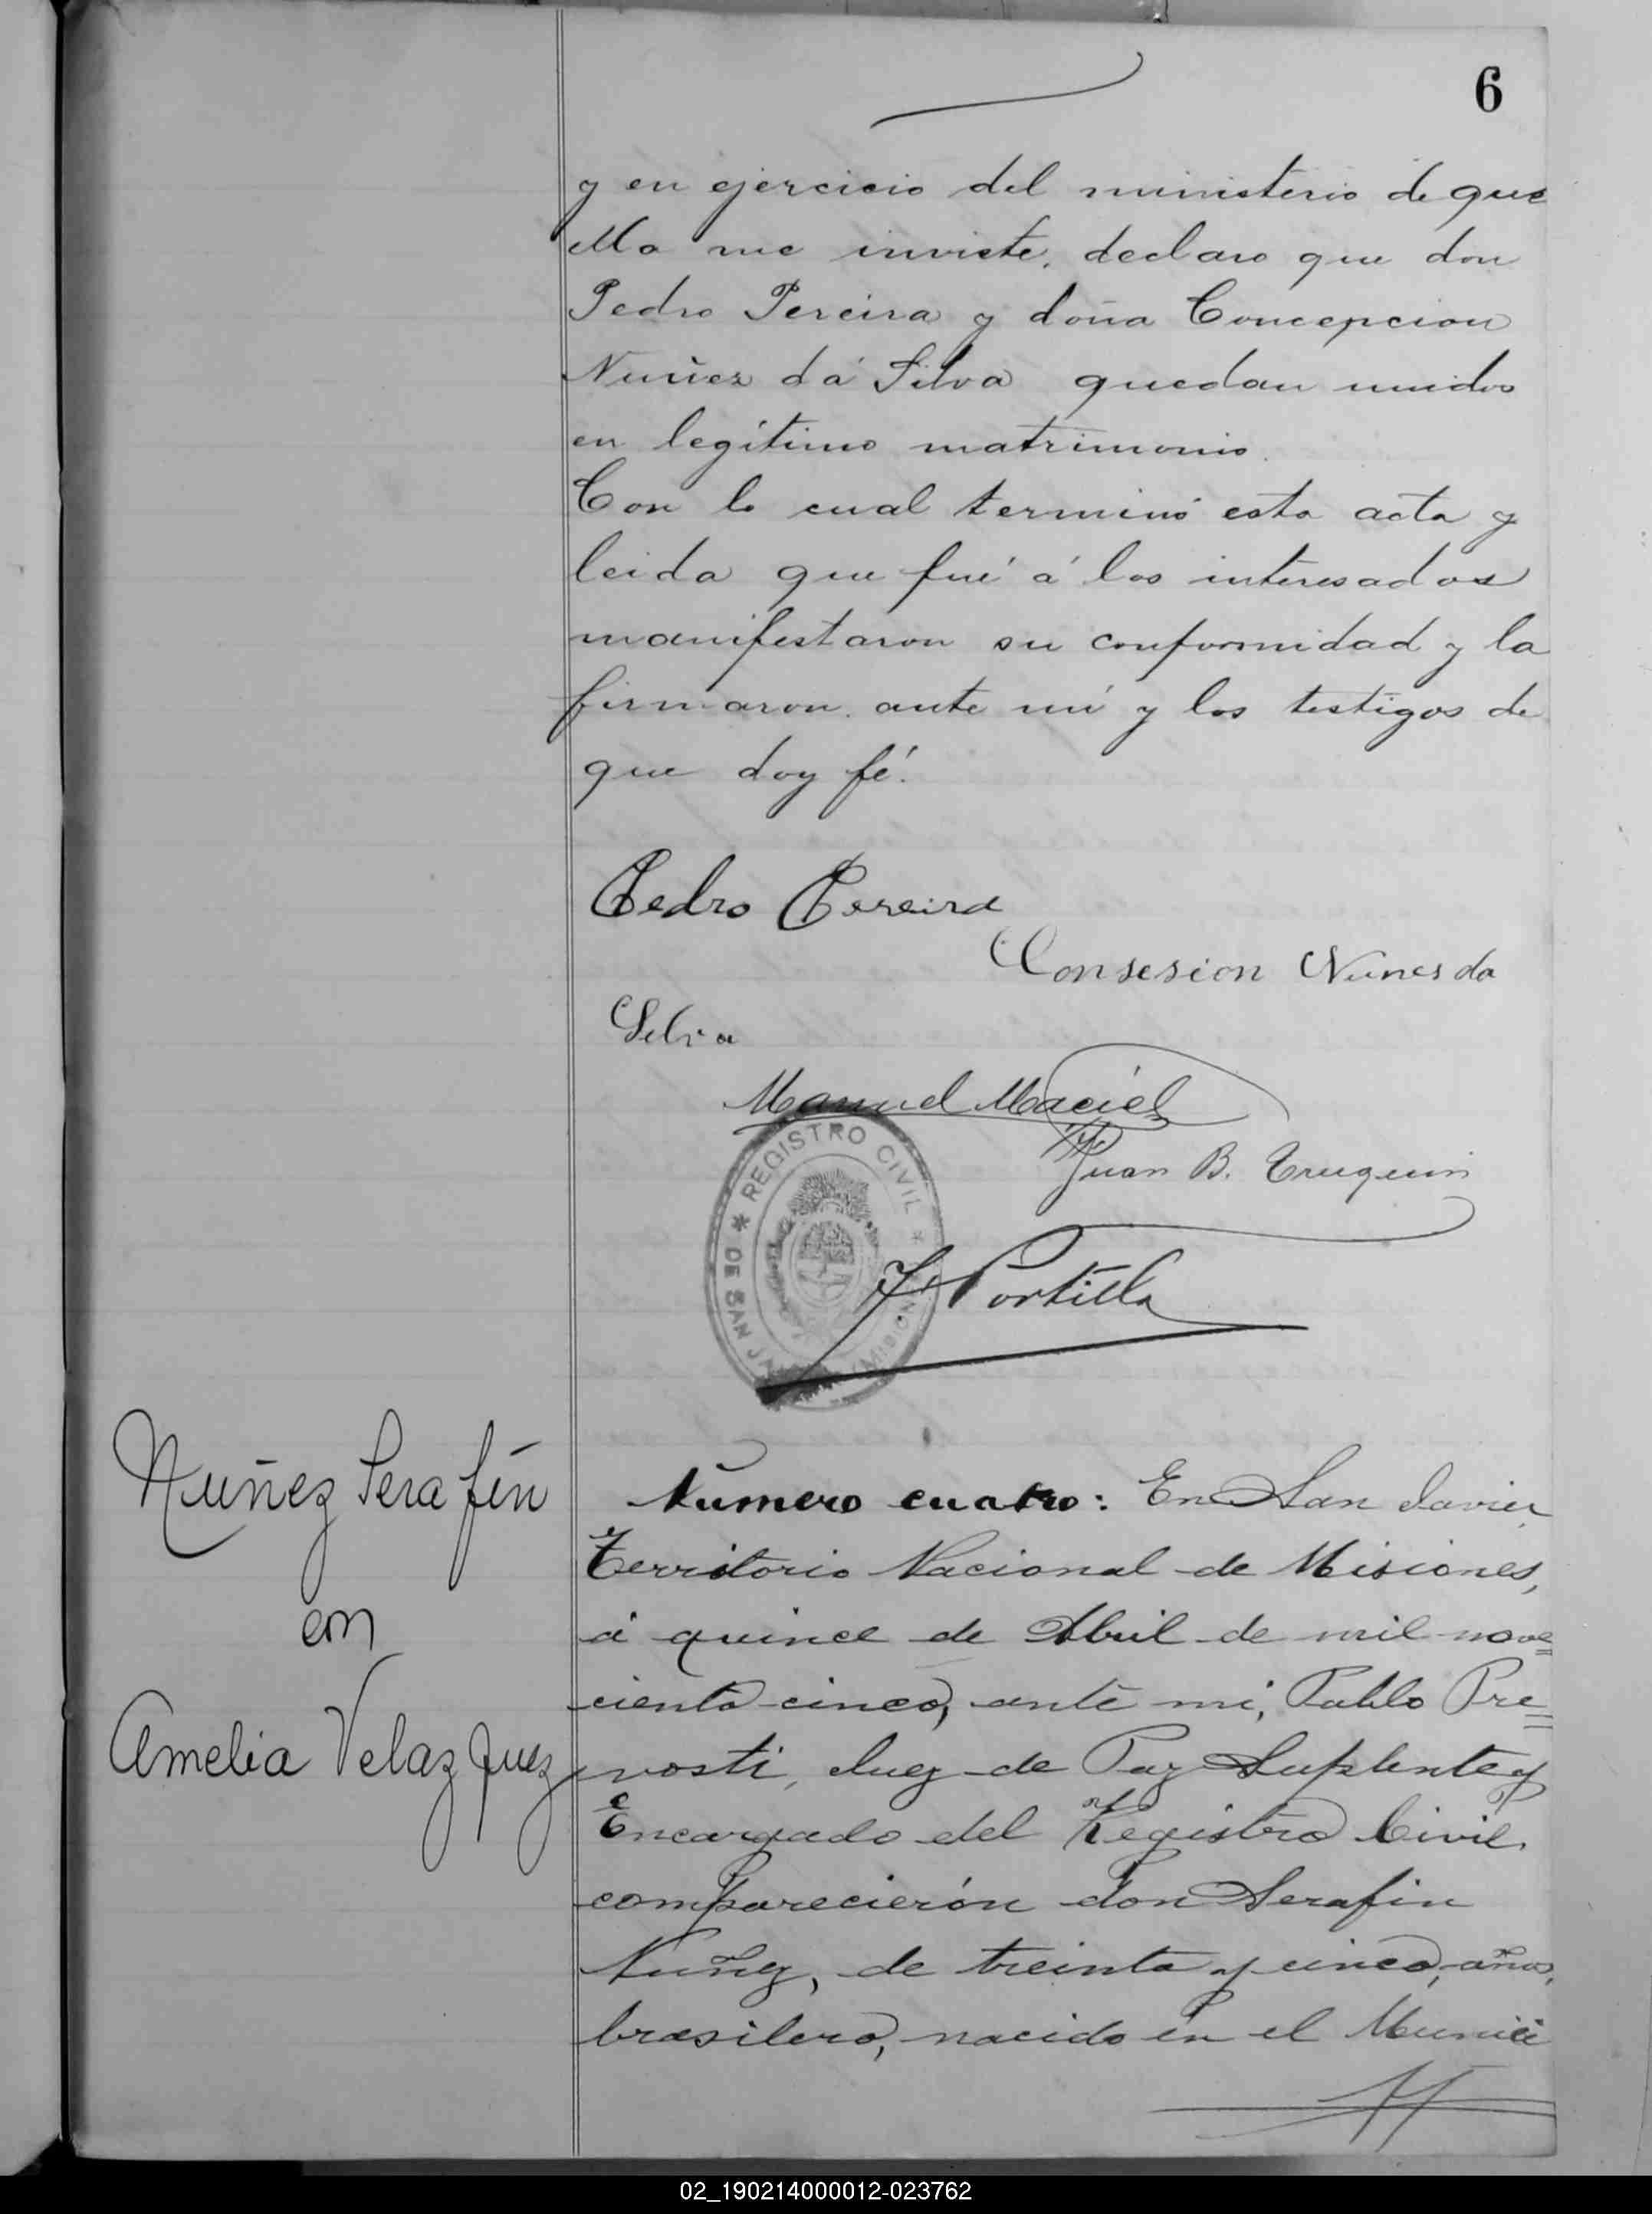 6
y en ejercicio del ministerio de que
ella me inviste, declaro que don
Pedro Pereira y doña Concepcion
Nuñez dá Silva quedan unidos
en legítimo matrimonio.
Con lo cual terminó esta acta y
leida que fué á los interesados
manifestaron su conformidad y la
firmaron ante mí y los testigos de
que doy fé.
Pedro Pereira
Consesion Nunes da
Silvia
Manuel Maciel
Juan B.
REGISTRO CIVIL
DE SAN
Portilla
Nuñez Serafín
con
Amelia Velazquez
Número cuatro: En San Javier,
Territorio Nacional de Misiones,
á quince de Abril de mil nove=
ciento cinco, ante mi, Pablo Pre=
vosti, Juez de Paz Suplente y
Encargado del Registro Civil,
comparecierón don Serafin
Nuñez, de treinta y cinco, años,
brasilero, nacido en el Munici
02_190214000012-023762